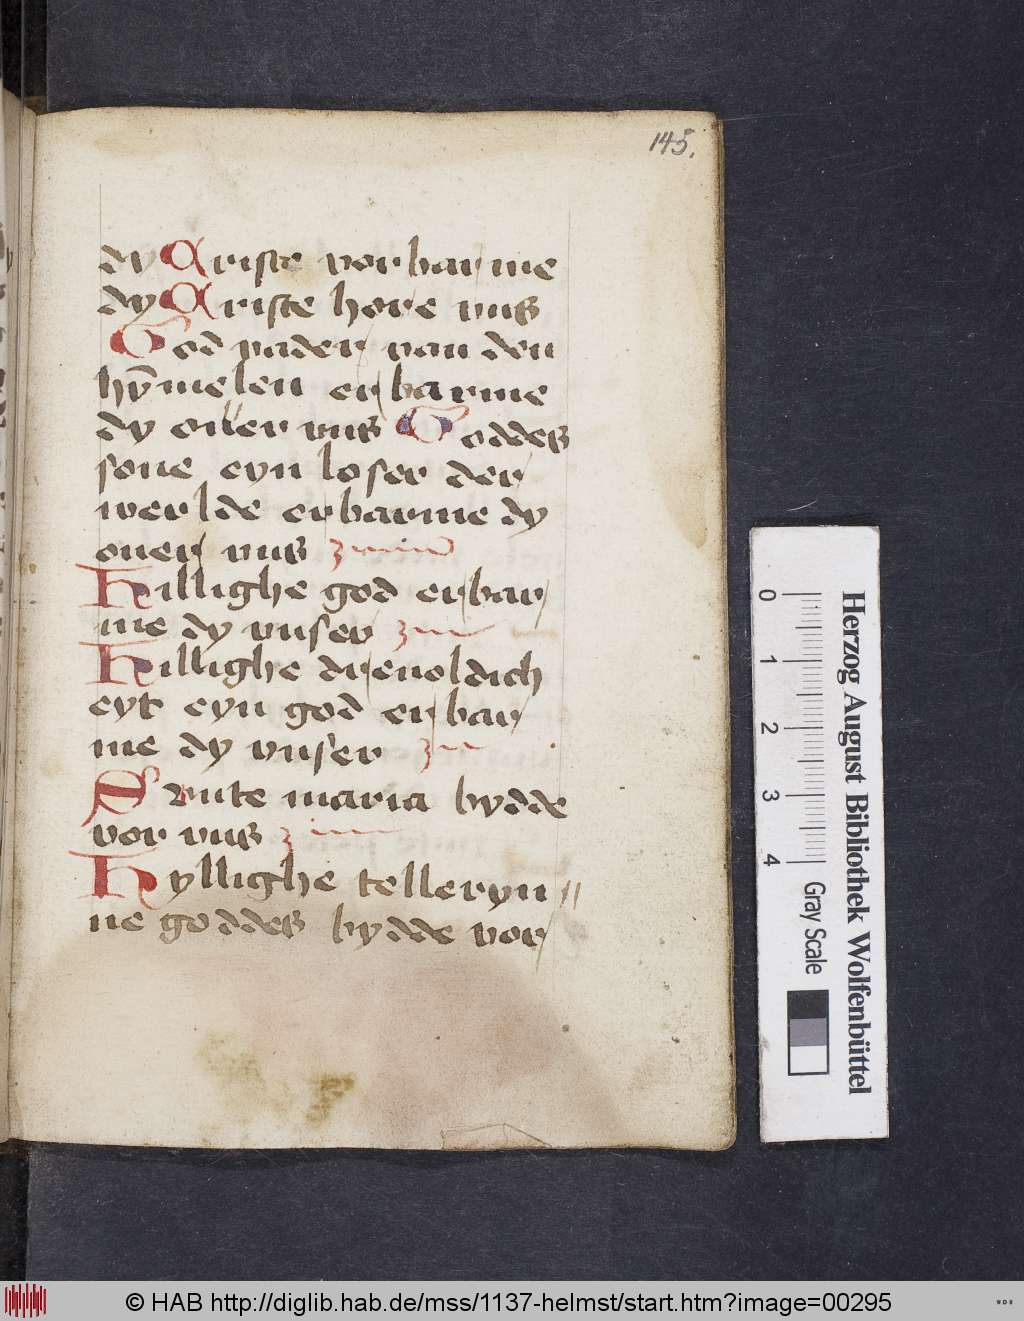 145.
dy Criste vorbarme
dy Criste hore vns
God vader van den
hÿmelen erbarme
dy ouer vns Goddes
sone eyn loser der
werlde erbarme dy
ouer vns
Hillighe god erbar
me dy vnser
Hillighe dreuoldich
eyt eyn god erbar
me dy vnser
Sancte maria bydde
vor vns
Hyllighe telleryn
ne goddes bydde vor
0 1 2 3 4
Gray Scale
Herzog August Bibliothek Wolfenbüttel
© HAB http://diglib.hab.de/mss/1137-helmst/start.htm?image=00295